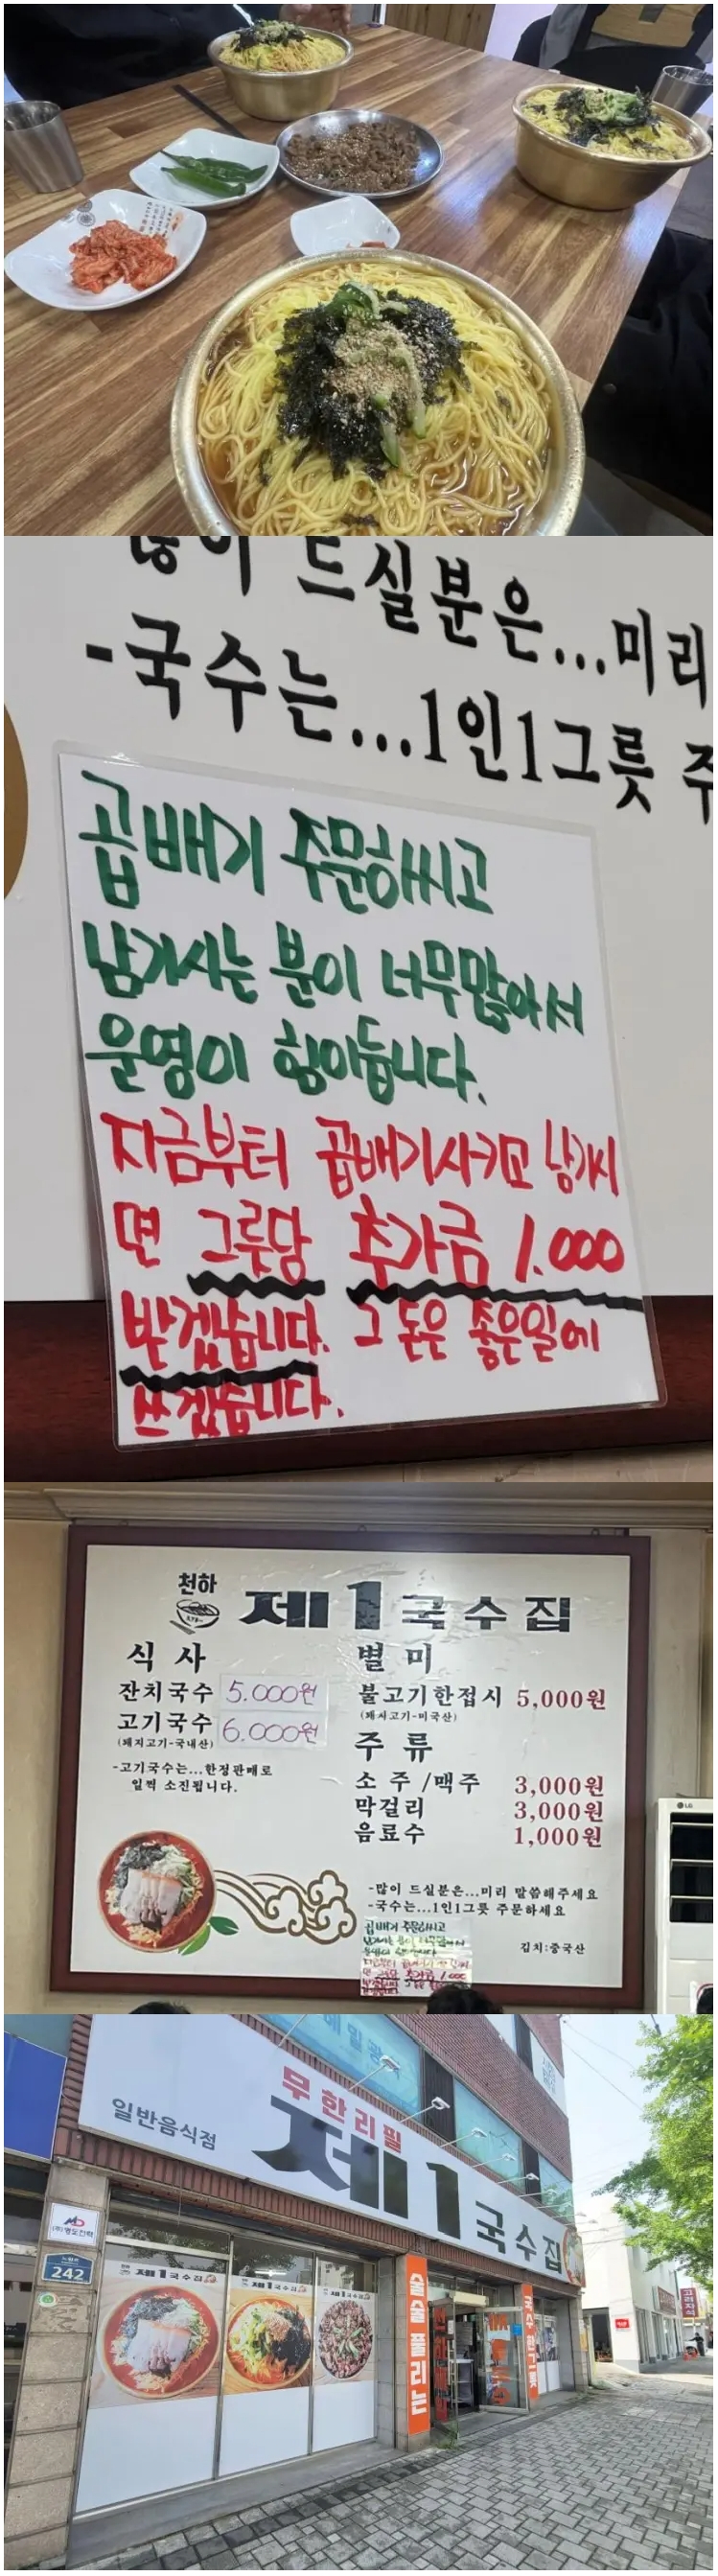 많이 드실분은...미리
-국수는...1인1그릇 주
곱배기 주문하시고
남기시는 분이 너무많아서
운영이 힘이듭니다.
지금부터 곱배기시키고 남기시
면 그릇당 추가금 1.000
받겠습니다. 그 돈은 좋은일에
쓰겠습니다.
천하
제1국수집
식사
잔치국수 5.000원
고기국수 6.000원
(돼지고기-국내산)
-고기국수는...한정판매로
일찍 소진됩니다.
별미
불고기한접시 5,000원
주류
소주/맥주 3,000원
막걸리 3,000원
음료수 1,000원
-많이 드실분은...미리 말씀해주세요
-국수는...1인1그릇 주문하세요
곱배기 주문하시고
김치:중국산
LG
무한리필
일반음식점
제1국수집
(주)명도전력
242
제1국수집
제1국수집
제1국수집
술술 풀리는
국수 한그릇